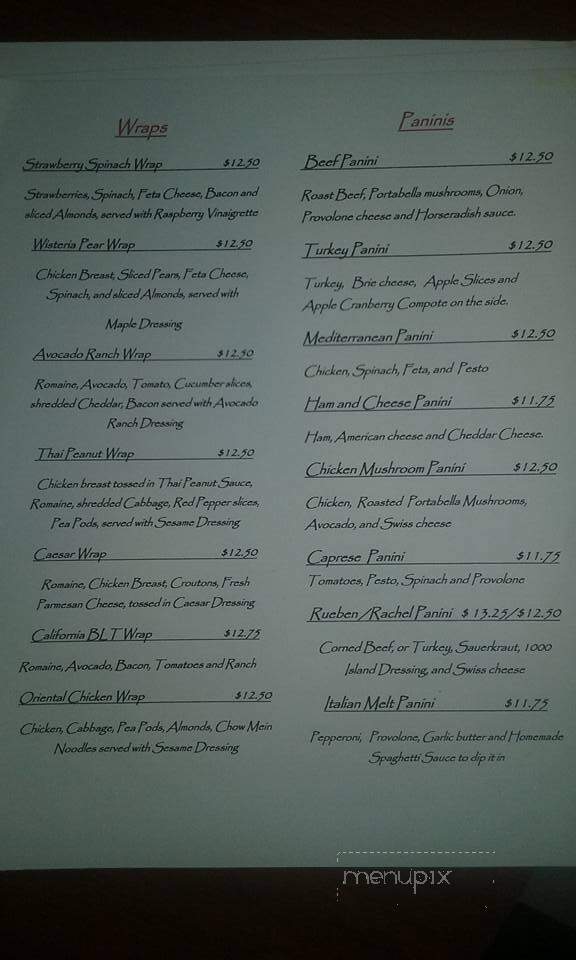 Wraps
Strawberry Spinach Wrap $12.50
Strawberries, Spinach, Feta Cheese, Bacon and
sliced Almonds, served with Raspberry Vinaigrette
Wisteria Pear Wrap $12.50
Chicken Breast, Sliced Pears, Feta Cheese,
Spinach, and sliced Almonds, served with
Maple Dressing
Avocado Ranch Wrap $12.50
Romaine, Avocado, Tomato, Cucumber slices,
shredded Cheddar, Bacon served with Avocado
Ranch Dressing
Thai Peanut Wrap $12.50
Chicken breast tossed in Thai Peanut Sauce,
Romaine, shredded Cabbage, Red Pepper slices,
Pea Pods, served with Sesame Dressing
Caesar Wrap $12.50
Romaine, Chicken Breast, Croutons, Fresh
Parmesan Cheese, tossed in Caesar Dressing
California BLT Wrap $12.75
Romaine, Avocado, Bacon, Tomatoes and Ranch
Oriental Chicken Wrap $12.50
Chicken, Cabbage, Pea Pods, Almonds, Chow Mein
Noodles served with Sesame Dressing
Paninis
Beef Panini $12.50
Roast Beef, Portabella mushrooms, Onion,
Provolone cheese and Horseradish sauce.
Turkey Panini $12.50
Turkey, Brie cheese, Apple Slices and
Apple Cranberry Compote on the side.
Mediterranean Panini $12.50
Chicken, Spinach, Feta, and Pesto
Ham and Cheese Panini $11.75
Ham, American cheese and Cheddar Cheese.
Chicken Mushroom Panini $12.50
Chicken, Roasted Portabella Mushrooms,
Avocado, and Swiss cheese
Caprese Panini $11.75
Tomatoes, Pesto, Spinach and Provolone
Rueben/Rachel Panini $13.25/$12.50
Corned Beef, or Turkey, Sauerkraut, 1000
Island Dressing, and Swiss cheese
Italian Melt Panini $11.75
Pepperoni, Provolone, Garlic butter and Homemade
Spaghetti Sauce to dip it in
menupix